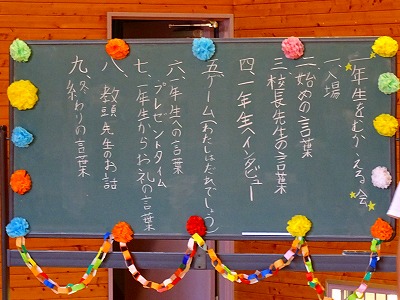 一年生をむかえる会
一、入場
二、始めの言葉
三、校長先生の言葉
四、一年生へインタビュー
五、ゲーム(わたしはだれでしょう)
六、一年生への言葉
プレゼントタイム
七、一年生からお礼の言葉
八、教頭先生のお話
九、終わりの言葉